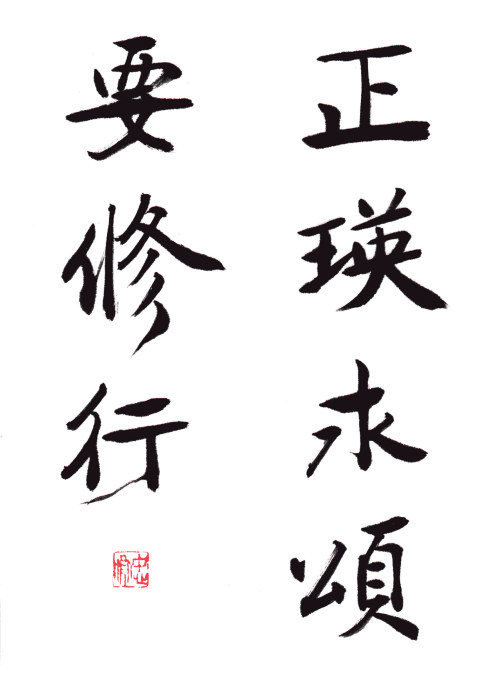 正瑛永頌
要修行